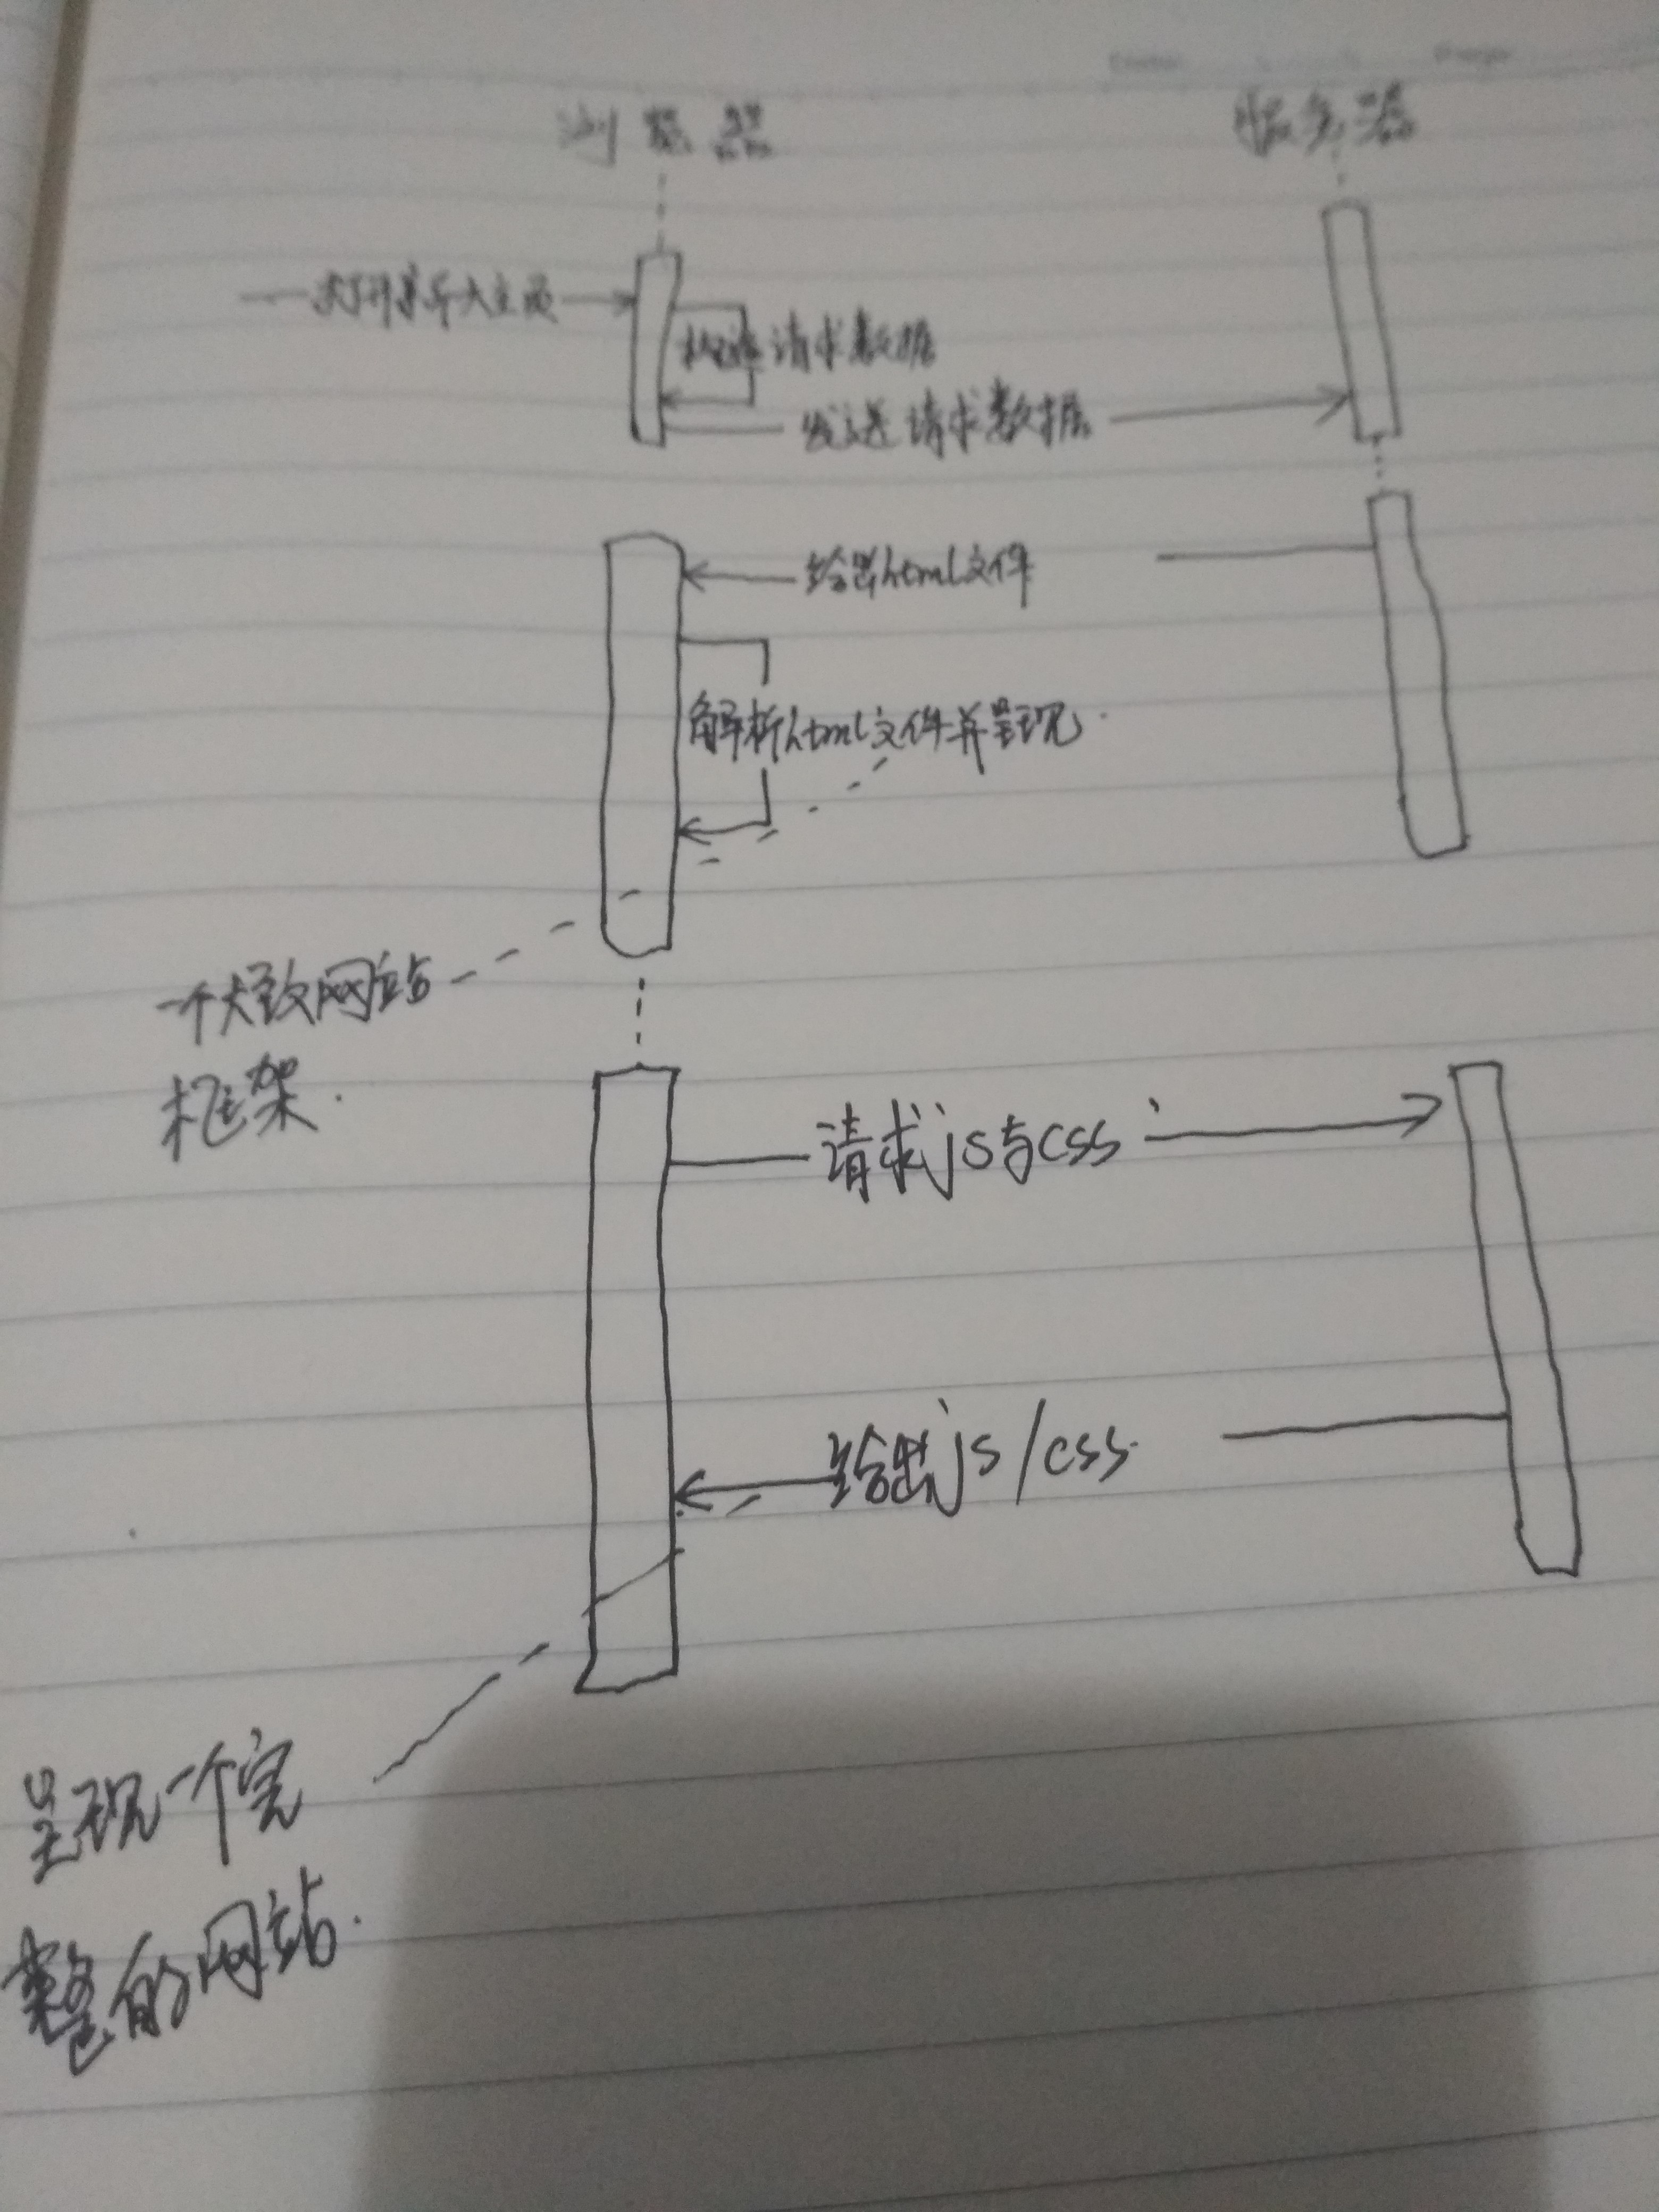 浏览器
服务器
打开 大主页
构造请求数据
发送请求数据
给出html文件
解析html文件并呈现
一个大致网站
框架.
请求js与css
给出js/css
呈现一个完
整的网站.